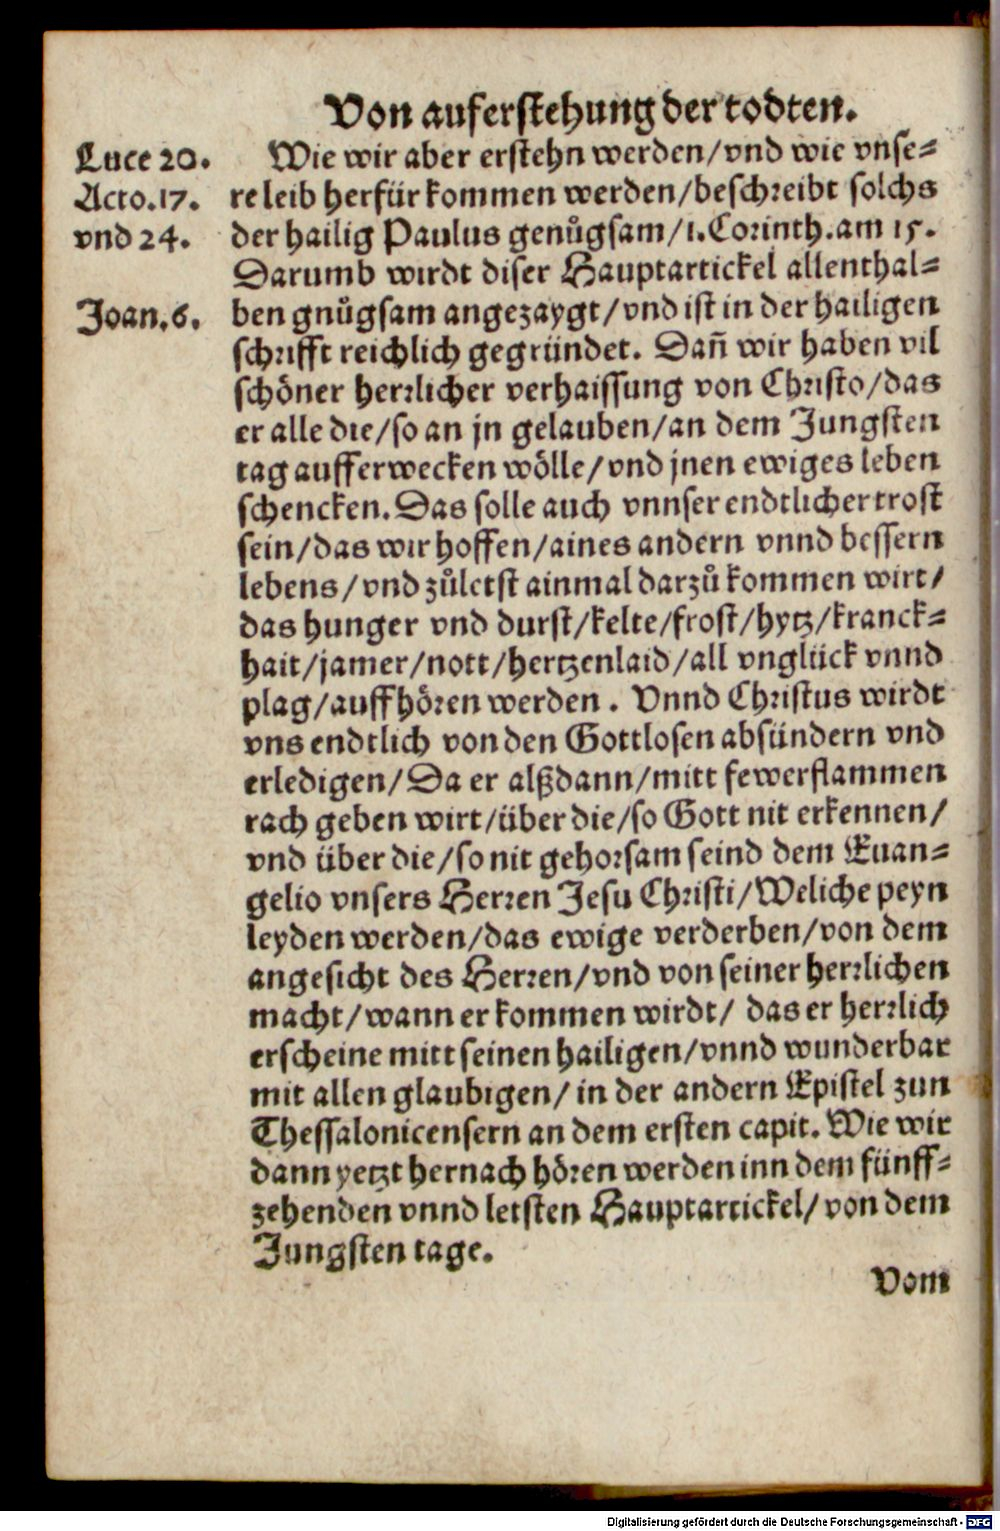 Von auferstehung der todten.
Luce 20.
Acto. 17.
vnd 24.
Joan. 6.
Wie wir aber erstehn werden/vnd wie vnse-
re leib herfür kommen werden/beschreibt solchs
der hailig Paulus genůgsam/1. Corinth. am 15.
Darumb wirdt diser Hauptartickel allenthal-
ben gnůgsam angezaygt/vnd ist in der hailigen
schrifft reichlich gegründet. Dañ wir haben vil
schöner herrlicher verhaissung von Christo/das
er alle die/so an jn gelauben/an dem Jungsten
tag aufferwecken wölle/vnd jnen ewiges leben
schencken. Das solle auch vnnser endtlicher trost
sein/das wir hoffen/aines andern vnnd bessern
lebens/vnd zůletst ainmal darzů kommen wirt/
das hunger vnd durst/kelte/frost/hytz/kranck-
hait/jamer/nott/hertzenlaid/all vnglück vnnd
plag/auffhören werden. Vnnd Christus wirdt
vns endtlich von den Gottlosen absündern vnd
erledigen/Da er alßdann/mitt fewerflammen
rach geben wirt/über die/so Gott nit erkennen/
vnd über die/so nit gehorsam seind dem Euan-
gelio vnsers Herren Jesu Christi/Weliche peyn
leyden werden/das ewige verderben/von dem
angesicht des Herren/vnd von seiner herrlichen
macht/wann er kommen wirdt/ das er herrlich
erscheine mitt seinen hailigen/vnnd wunderbar
mit allen glaubigen/ in der andern Epistel zun
Thessalonicensern an dem ersten capit. Wie wir
dann yetzt hernach hören werden inn dem fünff-
zehenden vnnd letsten Hauptartickel/von dem
Jungsten tage.
Vom
Digitalisierung gefördert durch die Deutsche Forschungsgemeinschaft - DFG